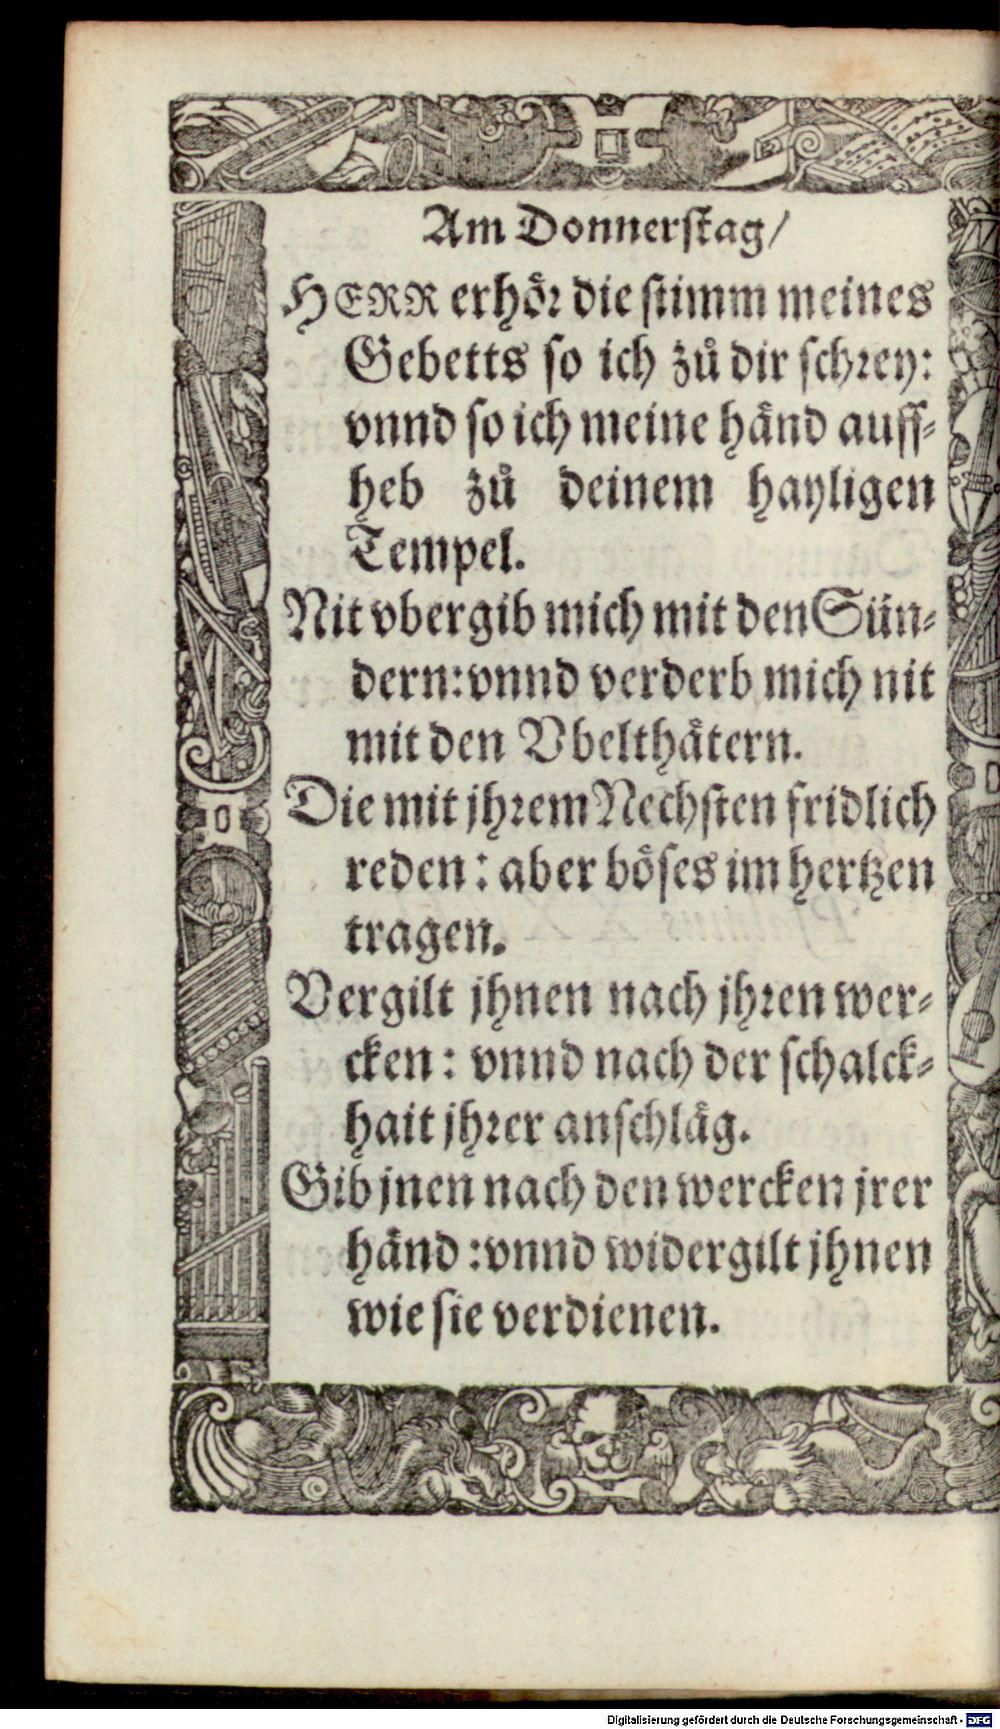 Am Donnerstag/
HERR erhör die stimm meines
Gebetts so ich zů dir schrey:
vnnd so ich meine händ auff⸗
heb zů deinem hayligen
Tempel.
Nit vbergib mich mit den Sün⸗
dern: vnnd verderb mich nit
mit den Vbelthätern.
Die mit jhrem Nechsten fridlich
reden: aber böses im hertzen
tragen.
Vergilt jhnen nach jhren wer⸗
cken: vnnd nach der schalck⸗
hait jhrer anschläg.
Gib jnen nach den wercken jrer
händ: vnnd widergilt jhnen
wie sie verdienen.
Digitalisierung gefördert durch die Deutsche Forschungsgemeinschaft - DFG